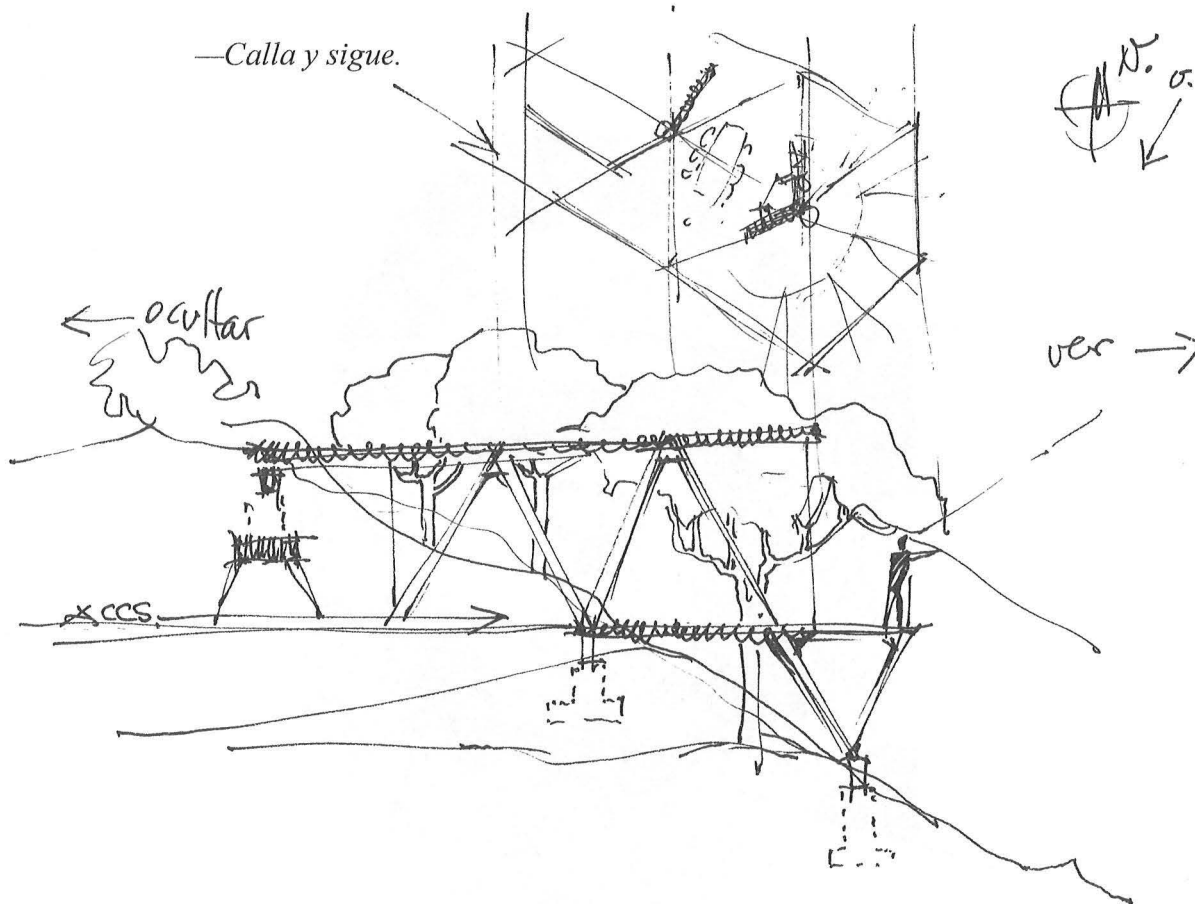 —Calla y sigue.
N.
o.
← ocultar
ver →
X CCS.